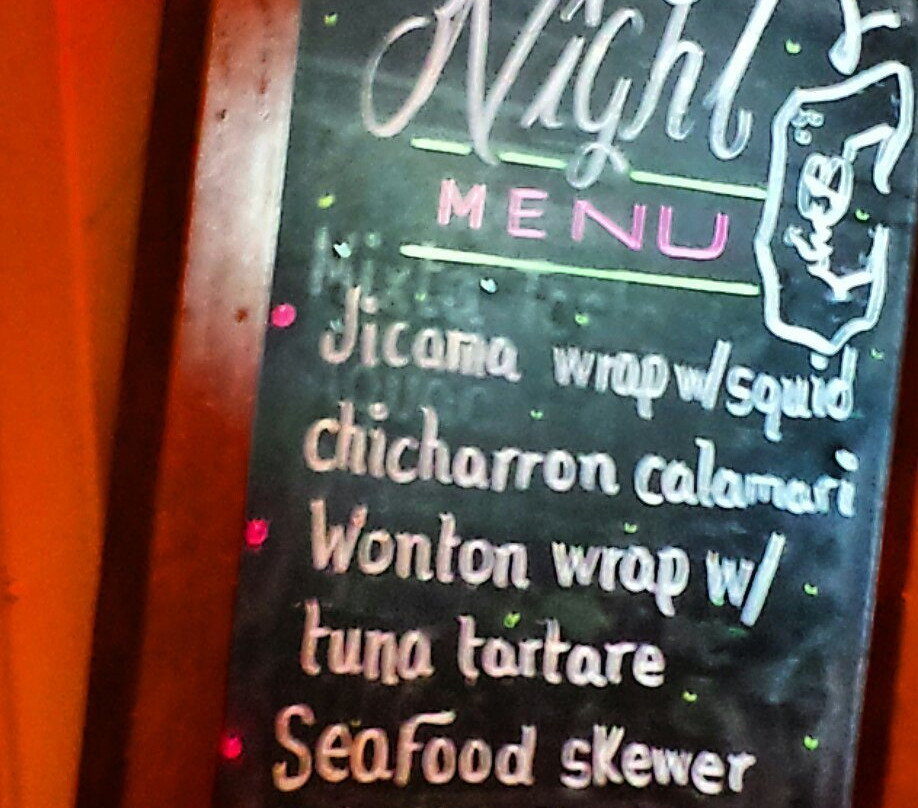 Night
MENU
Jicama wrap w/squid
chicharron calamari
Wonton wrap w/
tuna tartare
Seafood skewer